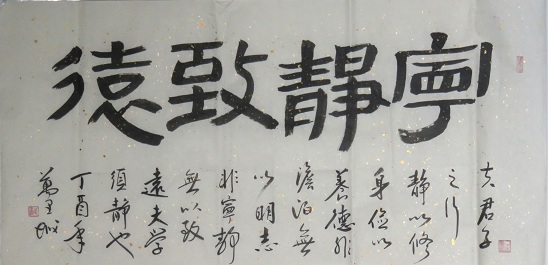 寧靜致遠
夫君子
之行
靜以修
身儉以
養德非
澹泊無
以明志
非寧靜
無以致
遠夫學
須靜也
丁酉年
萬里